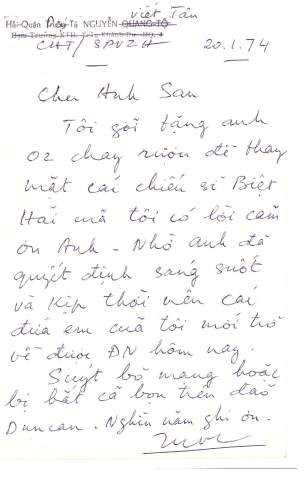 Việt Tân
Hải-Quân Tá NGUYỄN QUANG TỘ
CHT/SPVZH
20.1.74
Cher Anh San
Tôi gởi tặng anh
02 chay rượu để thay
mặt các chiến sĩ Biệt
Hải mà tôi có lời cảm
ơn Anh - Nhờ anh đã
quyết định sáng suốt
và kịp thời nên các
đứa em của tôi mới trở
về được ĐN hôm nay.
Suýt bỏ mạng hoặc
bị bắt cả bọn trên đảo
Duncan. Nghìn năm ghi ơn.